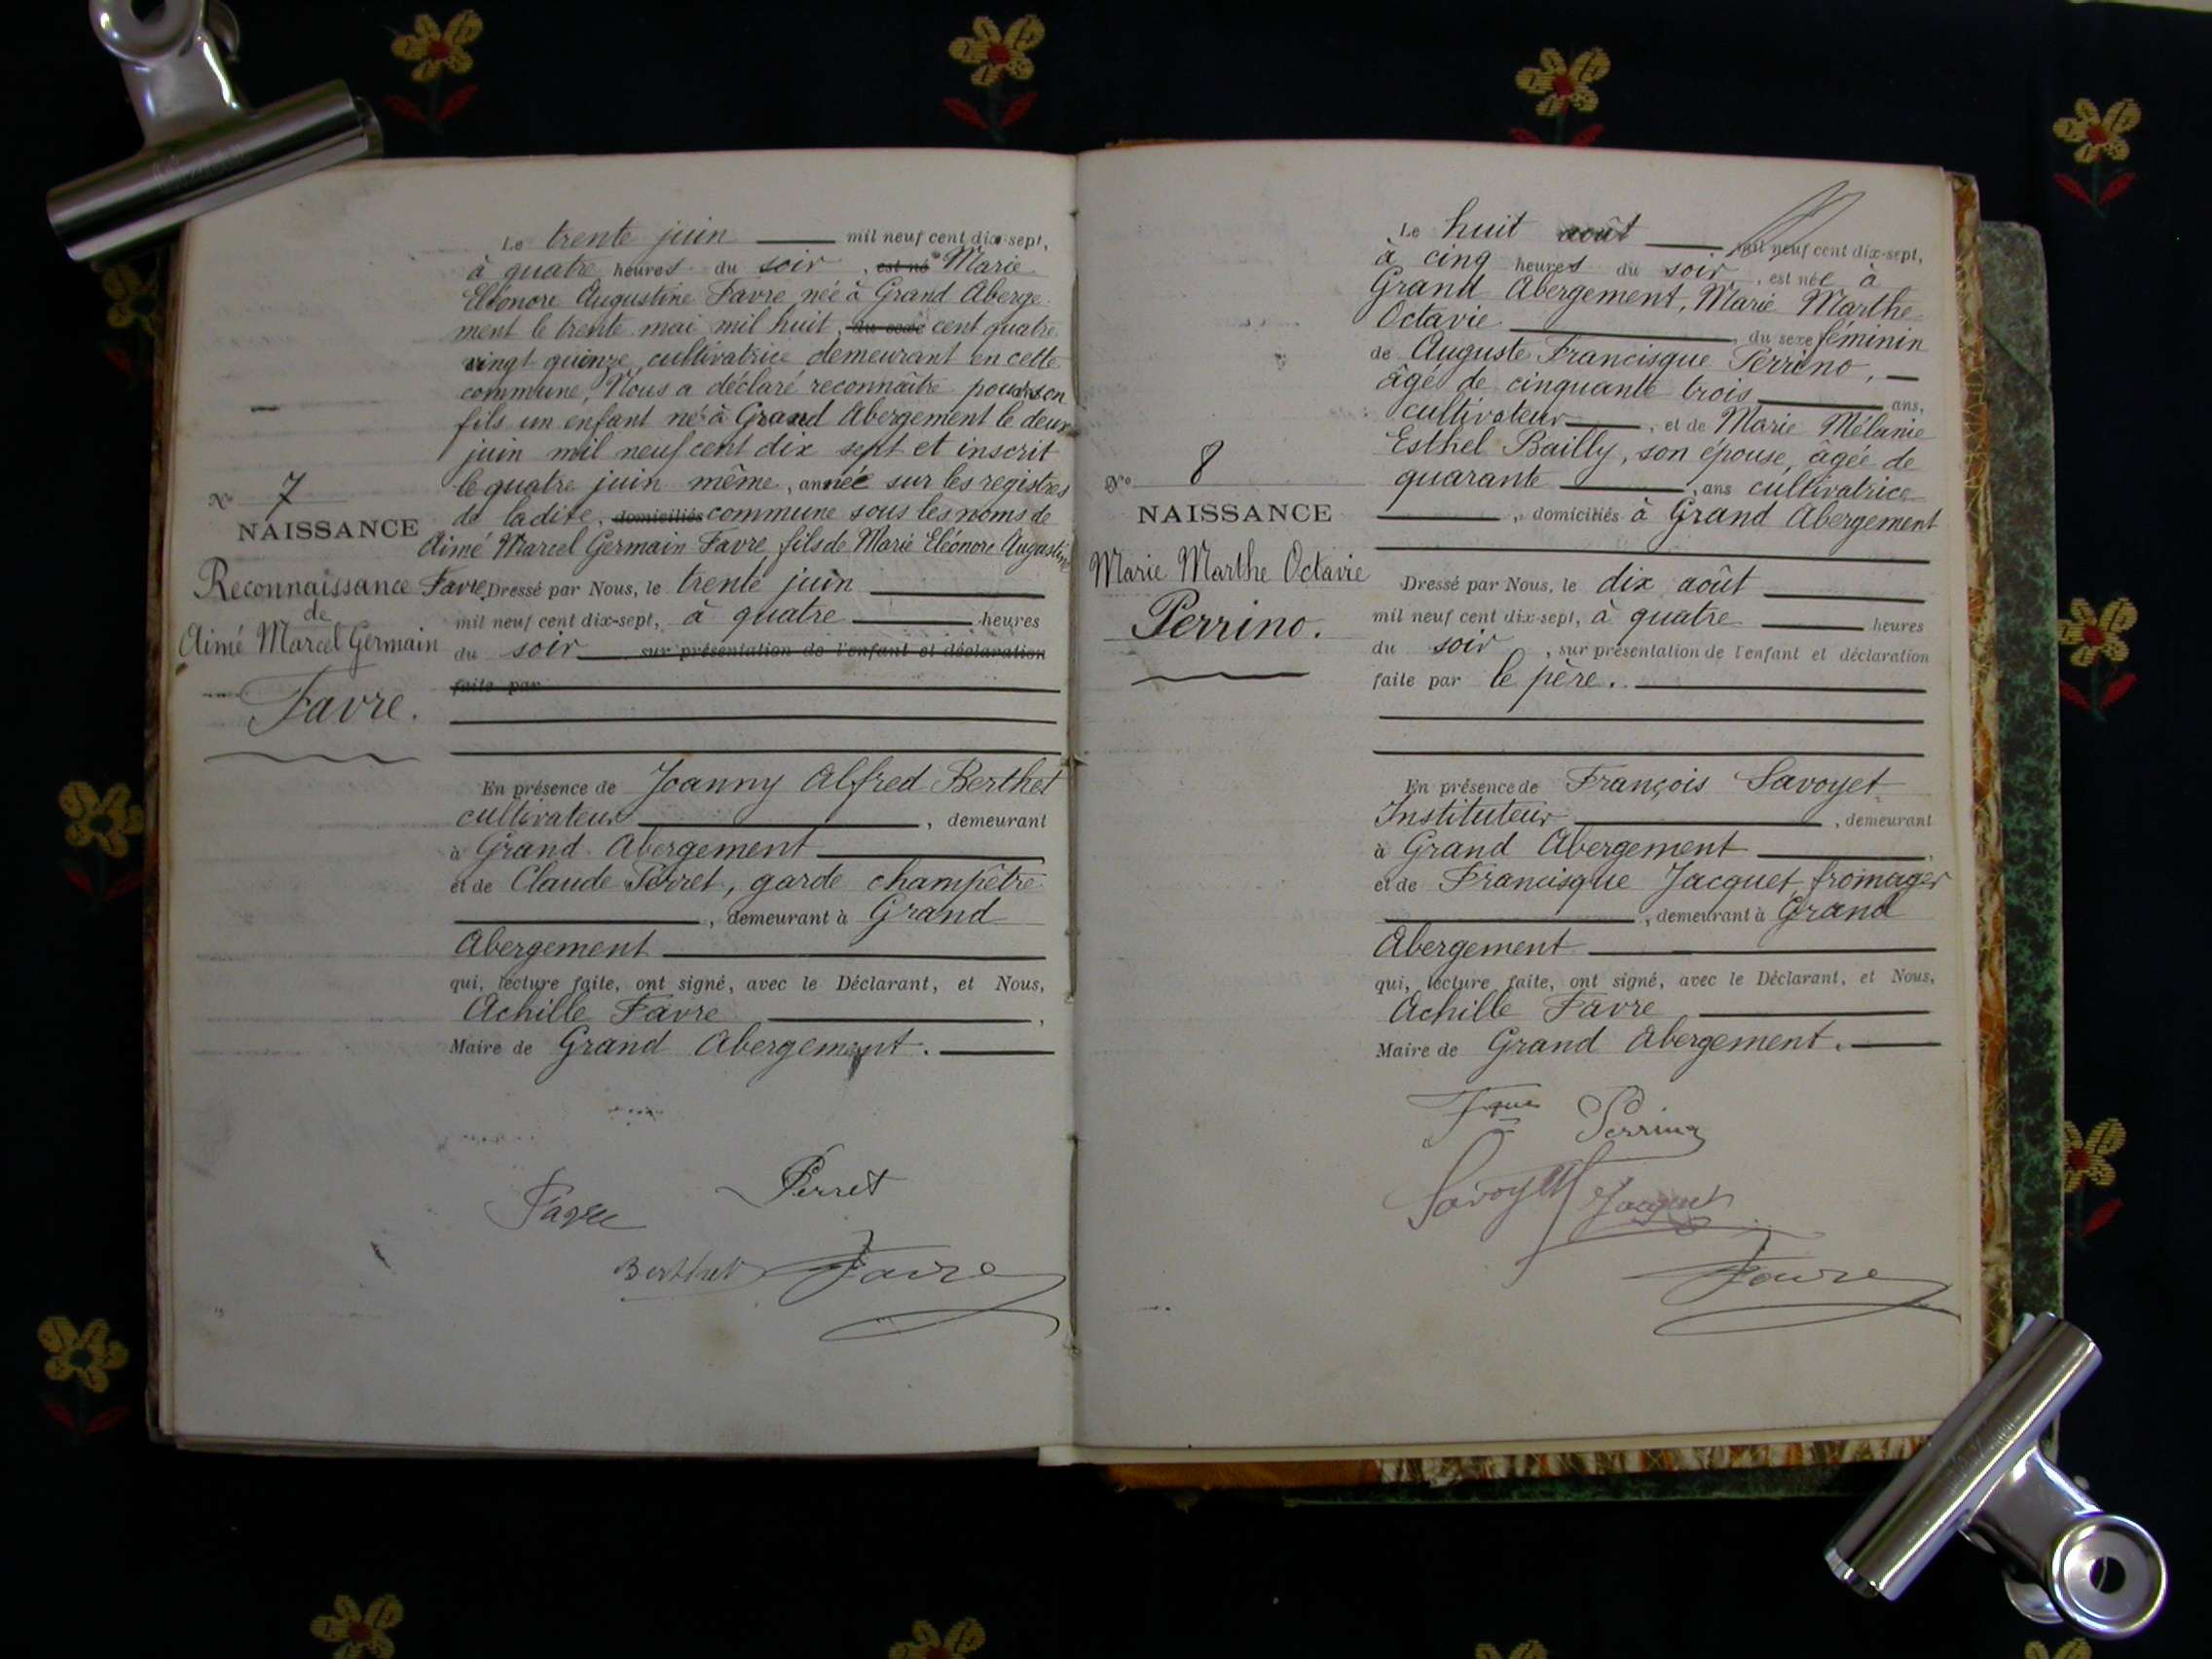 Le trente juin mil neuf cent dix-sept,
à quatre heures du soir, est né Marie
Eléonore Augustine Favre née à Grand Aberge-
ment le trente mai mil huit, du sexe cent quatre
vingt quinze, cultivatrice demeurant en cette
commune, Nous a déclaré reconnaître pour son
fils un enfant né à Grand Abergement le deux
juin mil neuf cent dix sept et inscrit
le quatre juin même, année sur les registres
de ladite, domiciliés commune sous les noms de
Aimé Marcel Germain Favre fils de Marie Eléonore Augustine
Favre. Dressé par Nous, le trente juin
mil neuf cent dix-sept, à quatre heures
du soir sur présentation de l'enfant et déclaration
faite par
En présence de Joanny Alfred Berthet
cultivateur, demeurant
à Grand Abergement
et de Claude Perret, garde champêtre
, demeurant à Grand
Abergement
qui, lecture faite, ont signé, avec le Déclarant, et Nous,
Achille Favre,
Maire de Grand Abergement.
Perret
Favre
Berthet Favre
No 7
NAISSANCE
Reconnaissance
de
Aimé Marcel Germain
Favre.
Le huit août mil neuf cent dix-sept,
à cinq heures du soir, est née à
Grand Abergement, Marie Marthe
Octavie, du sexe féminin
de Auguste Francisque Perrino,
âgé de cinquante trois ans,
cultivateur, et de Marie Mélanie
Esthel Bailly, son épouse, âgée de
quarante, ans cultivatrice
, domiciliés à Grand Abergement
Dressé par Nous, le dix août
mil neuf cent dix-sept, à quatre heures
du soir, sur présentation de l'enfant et déclaration
faite par le père.
En présence de François Savoyet
Instituteur, demeurant
à Grand Abergement
et de Francisque Jacquet, fromager
, demeurant à Grand
Abergement
qui, lecture faite, ont signé, avec le Déclarant, et Nous,
Achille Favre
Maire de Grand Abergement.
Fque Perrino
Savoyet Jacquet
Favre
No 8
NAISSANCE
Marie Marthe Octavie
Perrino.